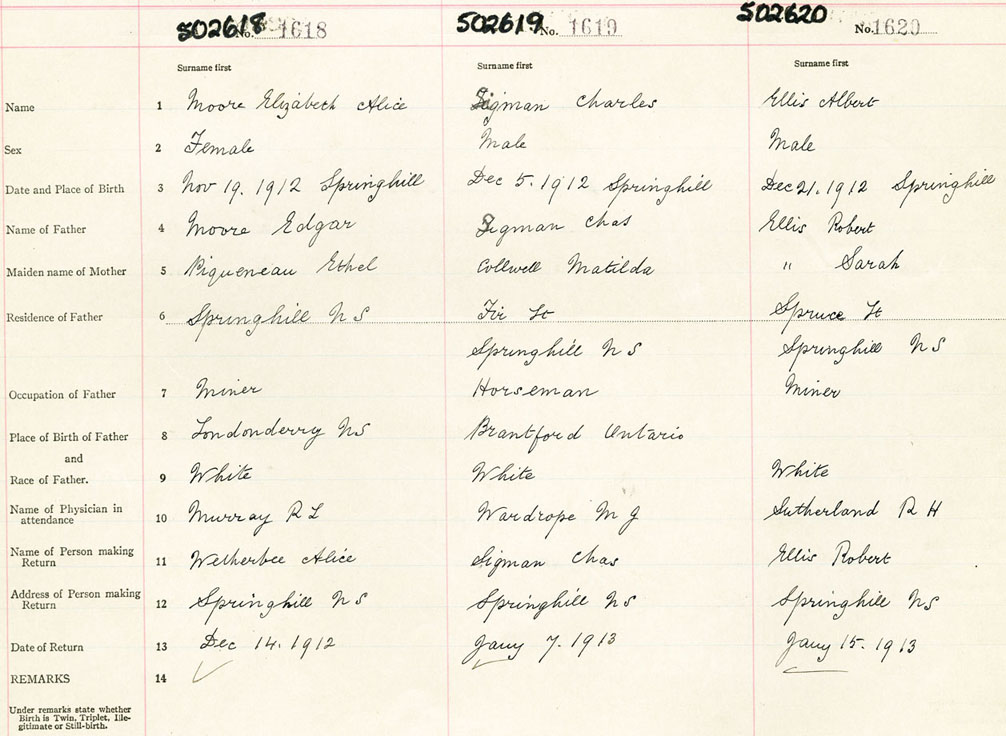 502618 No. 1618 502619 No. 1619 502620 No. 1620
Surname first Surname first Surname first
Name 1 Moore Elizabeth Alice Sigman Charles Ellis Albert
Sex 2 Female Male Male
Date and Place of Birth 3 Nov 19. 1912 Springhill Dec 5. 1912 Springhill Dec 21. 1912 Springhill
Name of Father 4 Moore Edgar Sigman Chas Ellis Robert
Maiden name of Mother 5 Piqueneau Ethel Collwell Matilda " Sarah
Residence of Father 6 Springhill N S Fir St Spruce St
Springhill N S Springhill N S
Occupation of Father 7 Miner Horseman Miner
Place of Birth of Father 8 Londonderry NS Brantford Ontario
and
Race of Father. 9 White White White
Name of Physician in
attendance 10 Murray R L Wardrope M J Sutherland R H
Name of Person making
Return 11 Wetherbee Alice Sigman Chas Ellis Robert
Address of Person making
Return 12 Springhill NS Springhill NS Springhill NS
Date of Return 13 Dec 14. 1912 Jany 7. 1913 Jany 15. 1913
REMARKS 14
Under remarks state whether
Birth is Twin, Triplet, Ille-
gitimate or Still-birth.